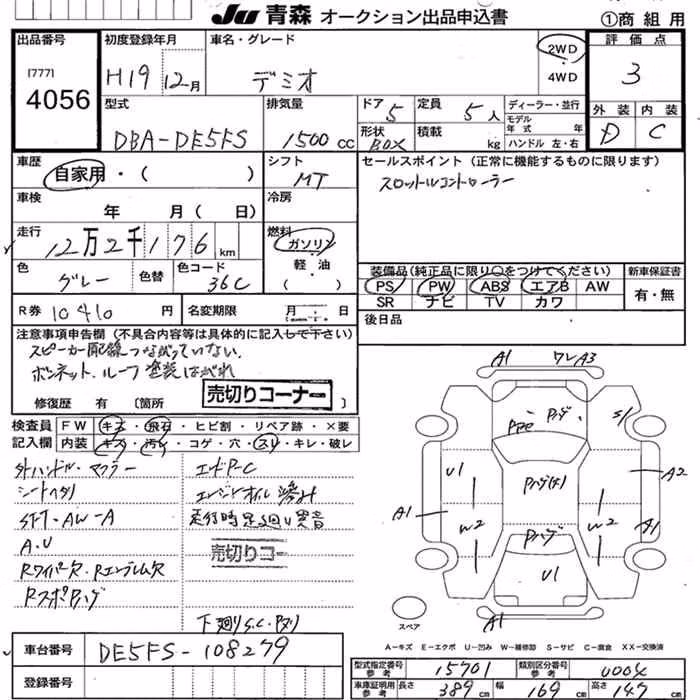 JU 青森 オークション出品申込書 ①商組用
出品番号 初度登録年月 車名・グレード 2WD 評価点
[777] H19 12月 デミオ 4WD 3
4056 型式 排気量 ドア 5 定員 5人 ディーラー・並行 外装 内装
DBA-DE5FS 1500cc 形状 BOX 積載 kg モデル年式 年 ハンドル 左・右 D C
車歴 自家用・( ) シフト MT セールスポイント(正常に機能するものに限ります)
車検 年 月( 日) 冷房 スロットルコントローラー
走行 12万2千176km 燃料 ガソリン
色 グレー 色替 色コード 36C 軽・油 ( ) 装備品(純正品に限り○をつけてください) 新車保証書
PS PW ABS エアB AW 有・無
SR ナビ TV カワ
R券 10410円 名変期限 月 日 後日品
注意事項申告欄(不具合内容等は具体的に記入して下さい)
スピーカー配線つながっていない.
ボンネット.ルーフ塗装はがれ
売切りコーナー
修復歴 有 〔箇所 〕
検査員 FW キズ・飛石・ヒビ割・リペア跡・×要
記入欄 内装 キズ・汚れ・コゲ・穴・スレ・キレ・破レ
外ハンドル・マフラー
シートヘタリ
SFT・AW-A
A.U
Rワイパー欠.Rエンブレム欠
Rスポハゲ
エンドP-C
エンジンオイル滲み
走行時足廻り異音
売切りコー
下廻りS.C.Pメリ
A1 ワレA3
Pハゲ
S1
U1
Pハゲ(大)
A2
A1
W2
Pハゲ
W2
A1
U1
A1
スペア
A-キズ E-エクボ U-凹み W-補修跡 S-サビ C-腐食 XX-交換済
車台番号 DE5FS-108279
登録番号
型式指定番号 参考 15701 類別区分番号 参考 0004
車庫証明用 参考 長さ 389cm 幅 169cm 高さ 147cm